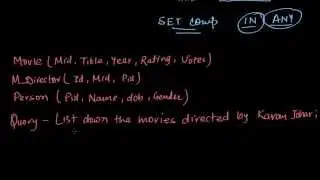 SET comp IN ANY
Movie ( Mid, Title, Year, Rating, Votes )
M_Director ( Id, Mid, Pid )
Person ( Pid, Name, dob, Gender )
Query - List down the movies directed by Karan Johar;